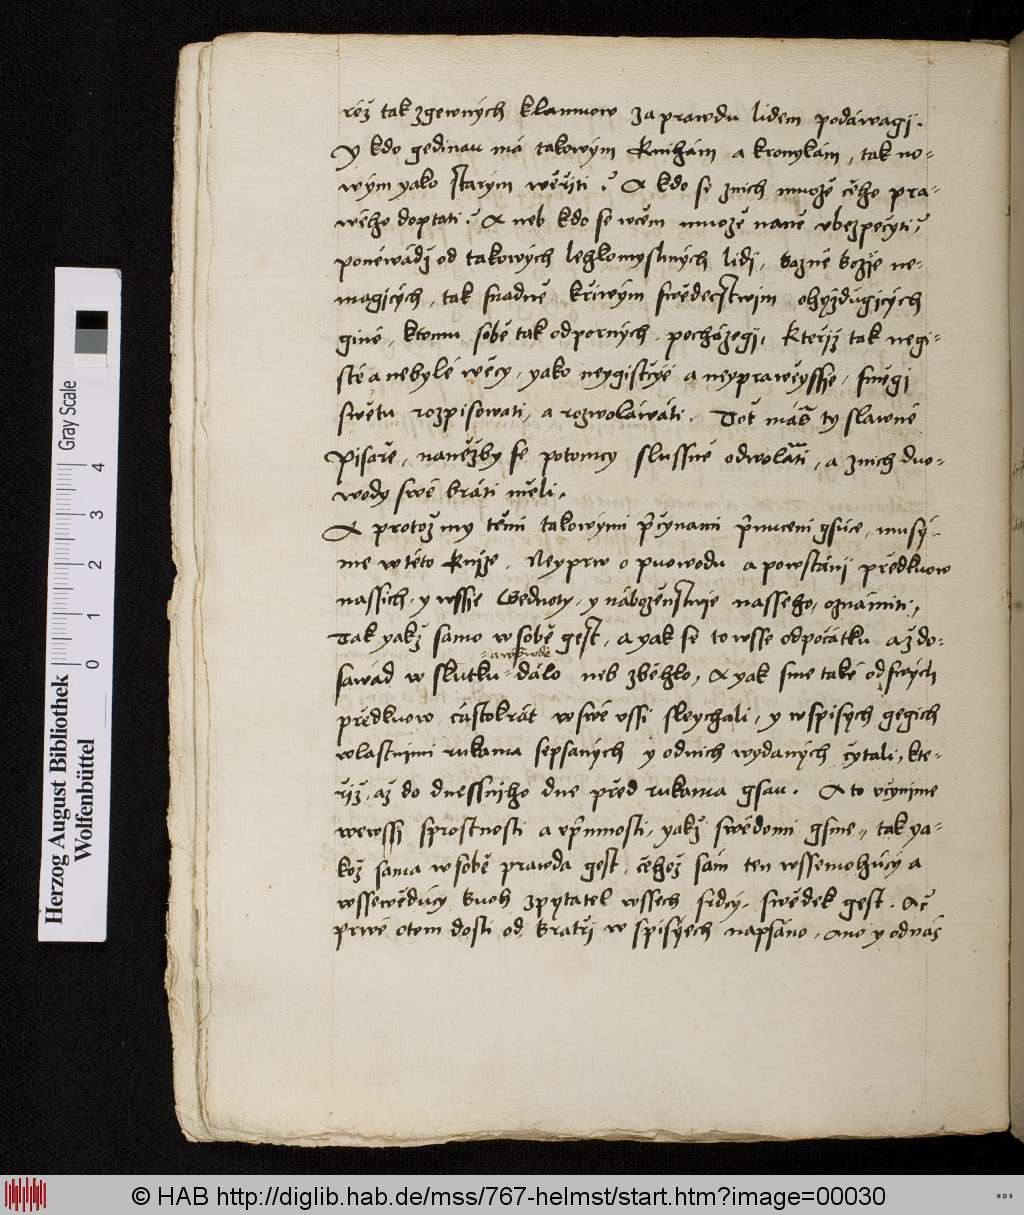 réž tak zgewných klamuow za prawdu lidem podáwagj.
Y kdo gedinau má takowým Knihám a kronykám, tak no-
wým yako starým wěřiti? A kdo se znich muože čeho pra-
wého doptati? A neb kdo se wčem muože naně vbezpečyti,
poněwádž od takowých lehkomyslných lidí, bázně božie ne-
magicých, tak snadně křiwým swědectwim ohyzdugicých
giné, ktomu sobě tak odporných, pocházegj, Kteřjž tak negi-
sté a nebylé wěcy, yako neygistčyé a neyprawěyssie, smegj
swětu rozpisowati, a rozwoláwáti. Toť máš ty slawné
Pisaře, naněžby se potomcy slussně odwolati, a znich duo-
wody swé bráti měli,
A protož my těmi takowými přčynami přinuceni gsúce, musý-
me w této Knize, Neyprw o puowodu a powstánj předkuow
nassich, y wssie Gednoty, y náboženstwie nasseho, oznámiti,
Tak yakž samo w sobě gest, a yak se to wsse odpočátku až do-
sawád w skutku dálo neb zběhlo, A yak sme také od swých
předkuow částokrát w swé ussi sleychali, y w spisých gegich
wlastnimi rukama sepsaných y odnich wydaných čytali, kte-
řiž, až do dnessnjho dne před rukama gsau. A to včynime
wewssj sprostnosti a vpřimnosti, yakž swědomi gsme, tak ya-
kož sama w sobě prawda gest, čehož sám ten wssemohúcý a
wssewědúcy Buoh zpytatel wssech srdcý, swědek gest. Ač
prwé otom dosti od Bratřj w spisých napsáno, Ano y odnás
Herzog August Bibliothek
Wolfenbüttel
Gray Scale
0 1 2 3 4
© HAB http://diglib.hab.de/mss/767-helmst/start.htm?image=00030
WDB